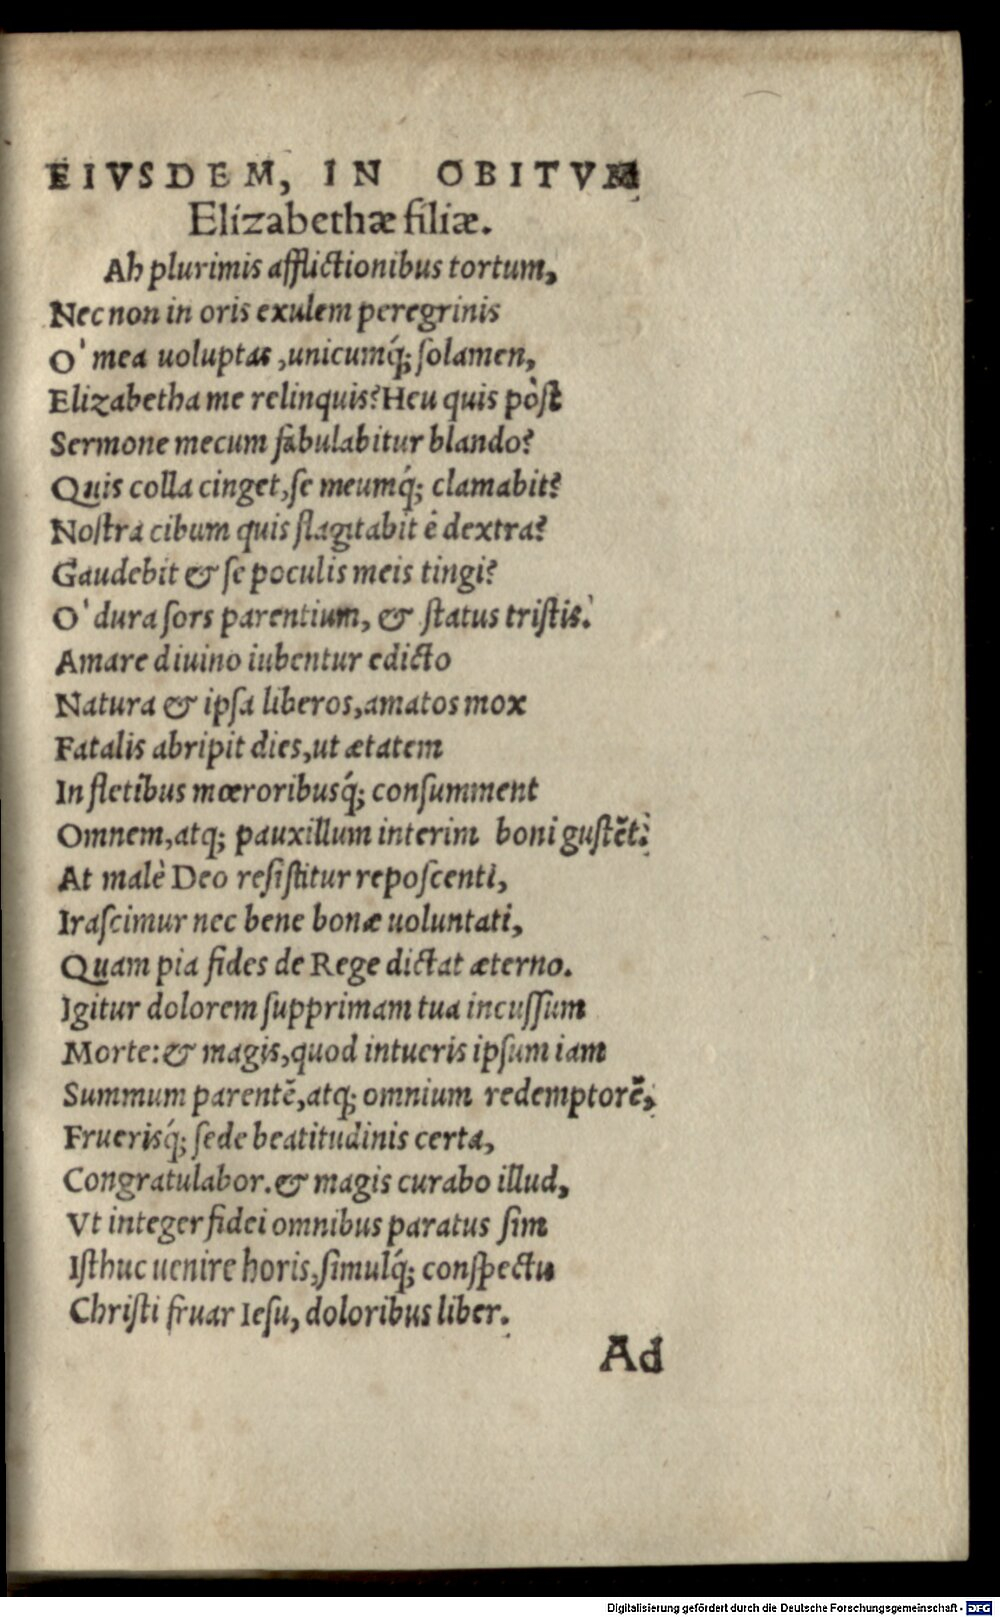 EIVSDEM, IN OBITVM
Elizabethæ filiæ.
Ah plurimis afflictionibus tortum,
Nec non in oris exulem peregrinis
O' mea uoluptas, unicumq́; ſolamen,
Elizabetha me relinquis? Heu quis pòſt
Sermone mecum fabulabitur blando?
Quis colla cinget, ſe meumq́; clamabit?
Noſtra cibum quis flagitabit è dextra?
Gaudebit & ſe poculis meis tingi?
O' dura ſors parentium, & ſtatus triſtis.
Amare diuino iubentur edicto
Natura & ipſa liberos, amatos mox
Fatalis abripit dies, ut ætatem
In fletibus mœroribusq́; conſumment
Omnem, atq; pauxillum interim boni guſtẽt.
At malè Deo reſiſtitur repoſcenti,
Iraſcimur nec bene bonæ uoluntati,
Quam pia fides de Rege dictat æterno.
Igitur dolorem ſupprimam tua incuſſum
Morte: & magis, quod intueris ipſum iam
Summum parentẽ, atq; omnium redemptorẽ,
Fruerisq́; ſede beatitudinis certa,
Congratulabor. & magis curabo illud,
Vt integer fidei omnibus paratus ſim
Iſthuc uenire horis, ſimulq́; conſpectu
Chriſti fruar Ieſu, doloribus liber.
Ad
Digitalisierung gefördert durch die Deutsche Forschungsgemeinschaft - DFG